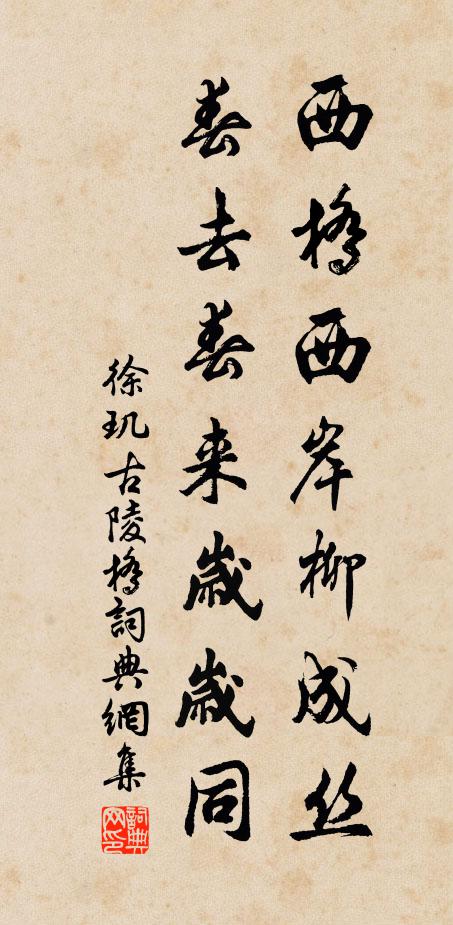 西橋西岸柳成丝
春去春来歳歳同
徐玑古陵橋詞典網集
詞典网印